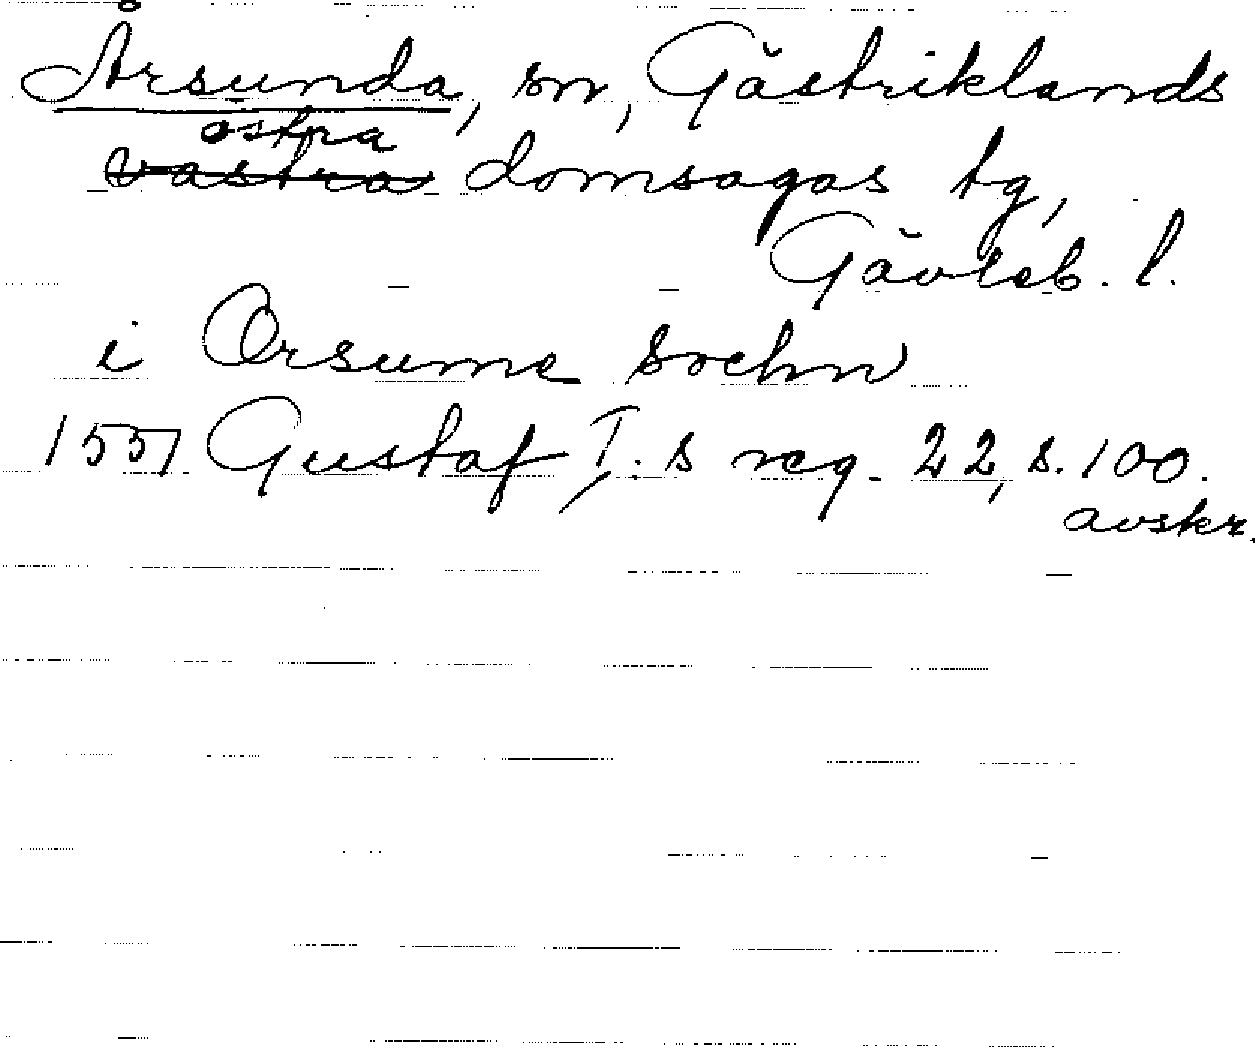 Årsunda, sn, Gästriklands
östra
västra domsagas tg,
Gävleb. l.
i Orsunne sochn
1557 Gustaf I:s reg. 22, s. 100.
avskr.